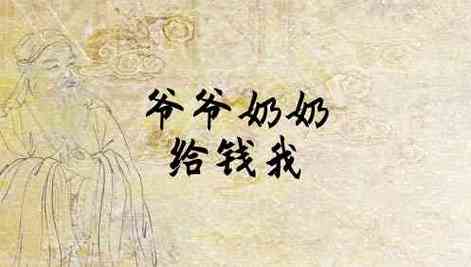 爷爷奶奶
给钱我